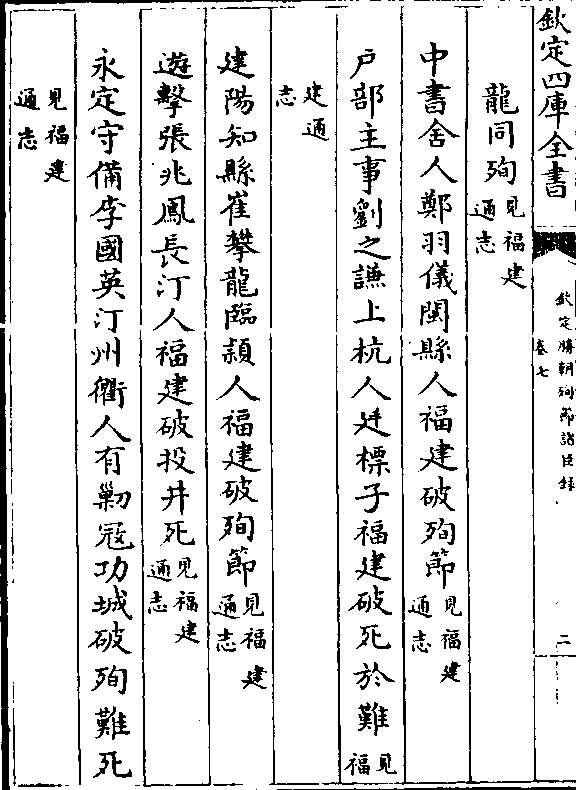 欽定四庫全書
欽定勝朝殉節諸臣錄
卷七
二
龍同殉見福建通志
中書舍人鄭羽儀閩縣人福建破殉節見福建通志
戶部主事劉之謙上杭人廷標子福建破死於難見福
建通志
建陽知縣崔攀龍臨潁人福建破殉節見福建通志
遊擊張兆鳳長汀人福建破投井死見福建通志
永定守備李國英汀州衛人有勦冦功城破殉難死
見福建通志